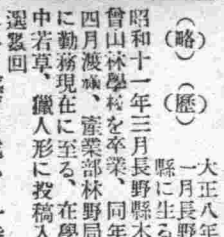 （略）（歴）
大正八年
一月長野
縣に生る
昭和十一年三月長野縣木
曾山林學校を卒業、同年
四月渡滿、産業部林野局
に勤務現在に至る、在學
中若草、獵人形に投稿入
選數回